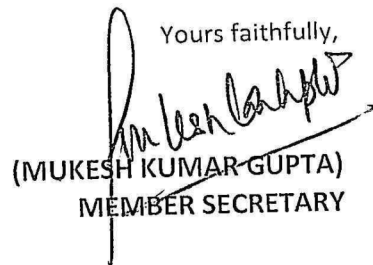 Yours faithfully,
(MUKESH KUMAR GUPTA)
MEMBER SECRETARY